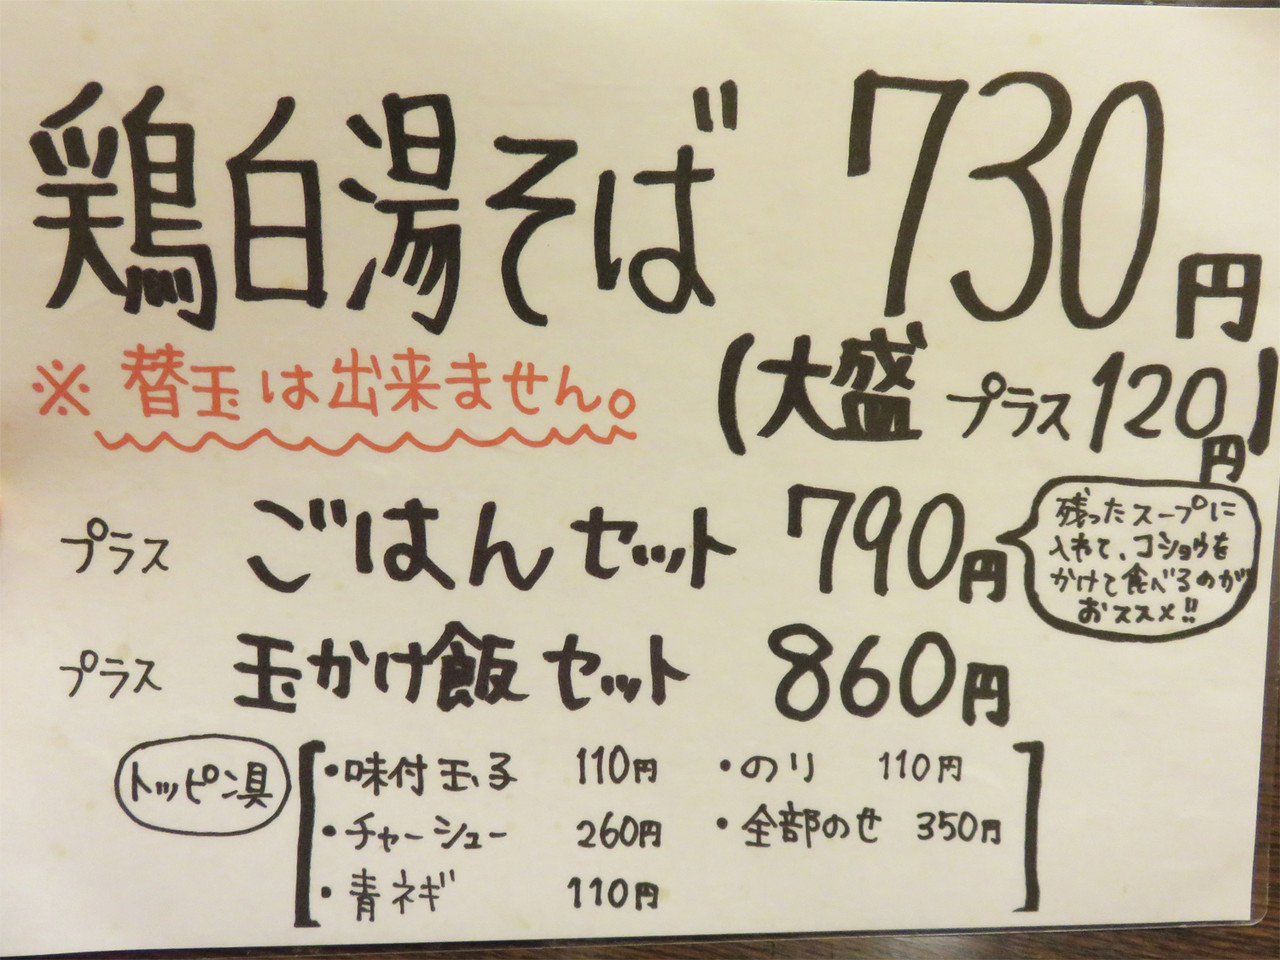 鶏白湯そば 730円
※ 替玉は出来ません。
(大盛 プラス 120円)
プラス ごはんセット 790円
残ったスープに
入れて、コショウを
かけて食べるのが
おススメ!!
プラス 玉かけ飯セット 860円
トッピン具
・味付玉子 110円 ・のり 110円
・チャーシュー 260円 ・全部のせ 350円
・青ネギ 110円